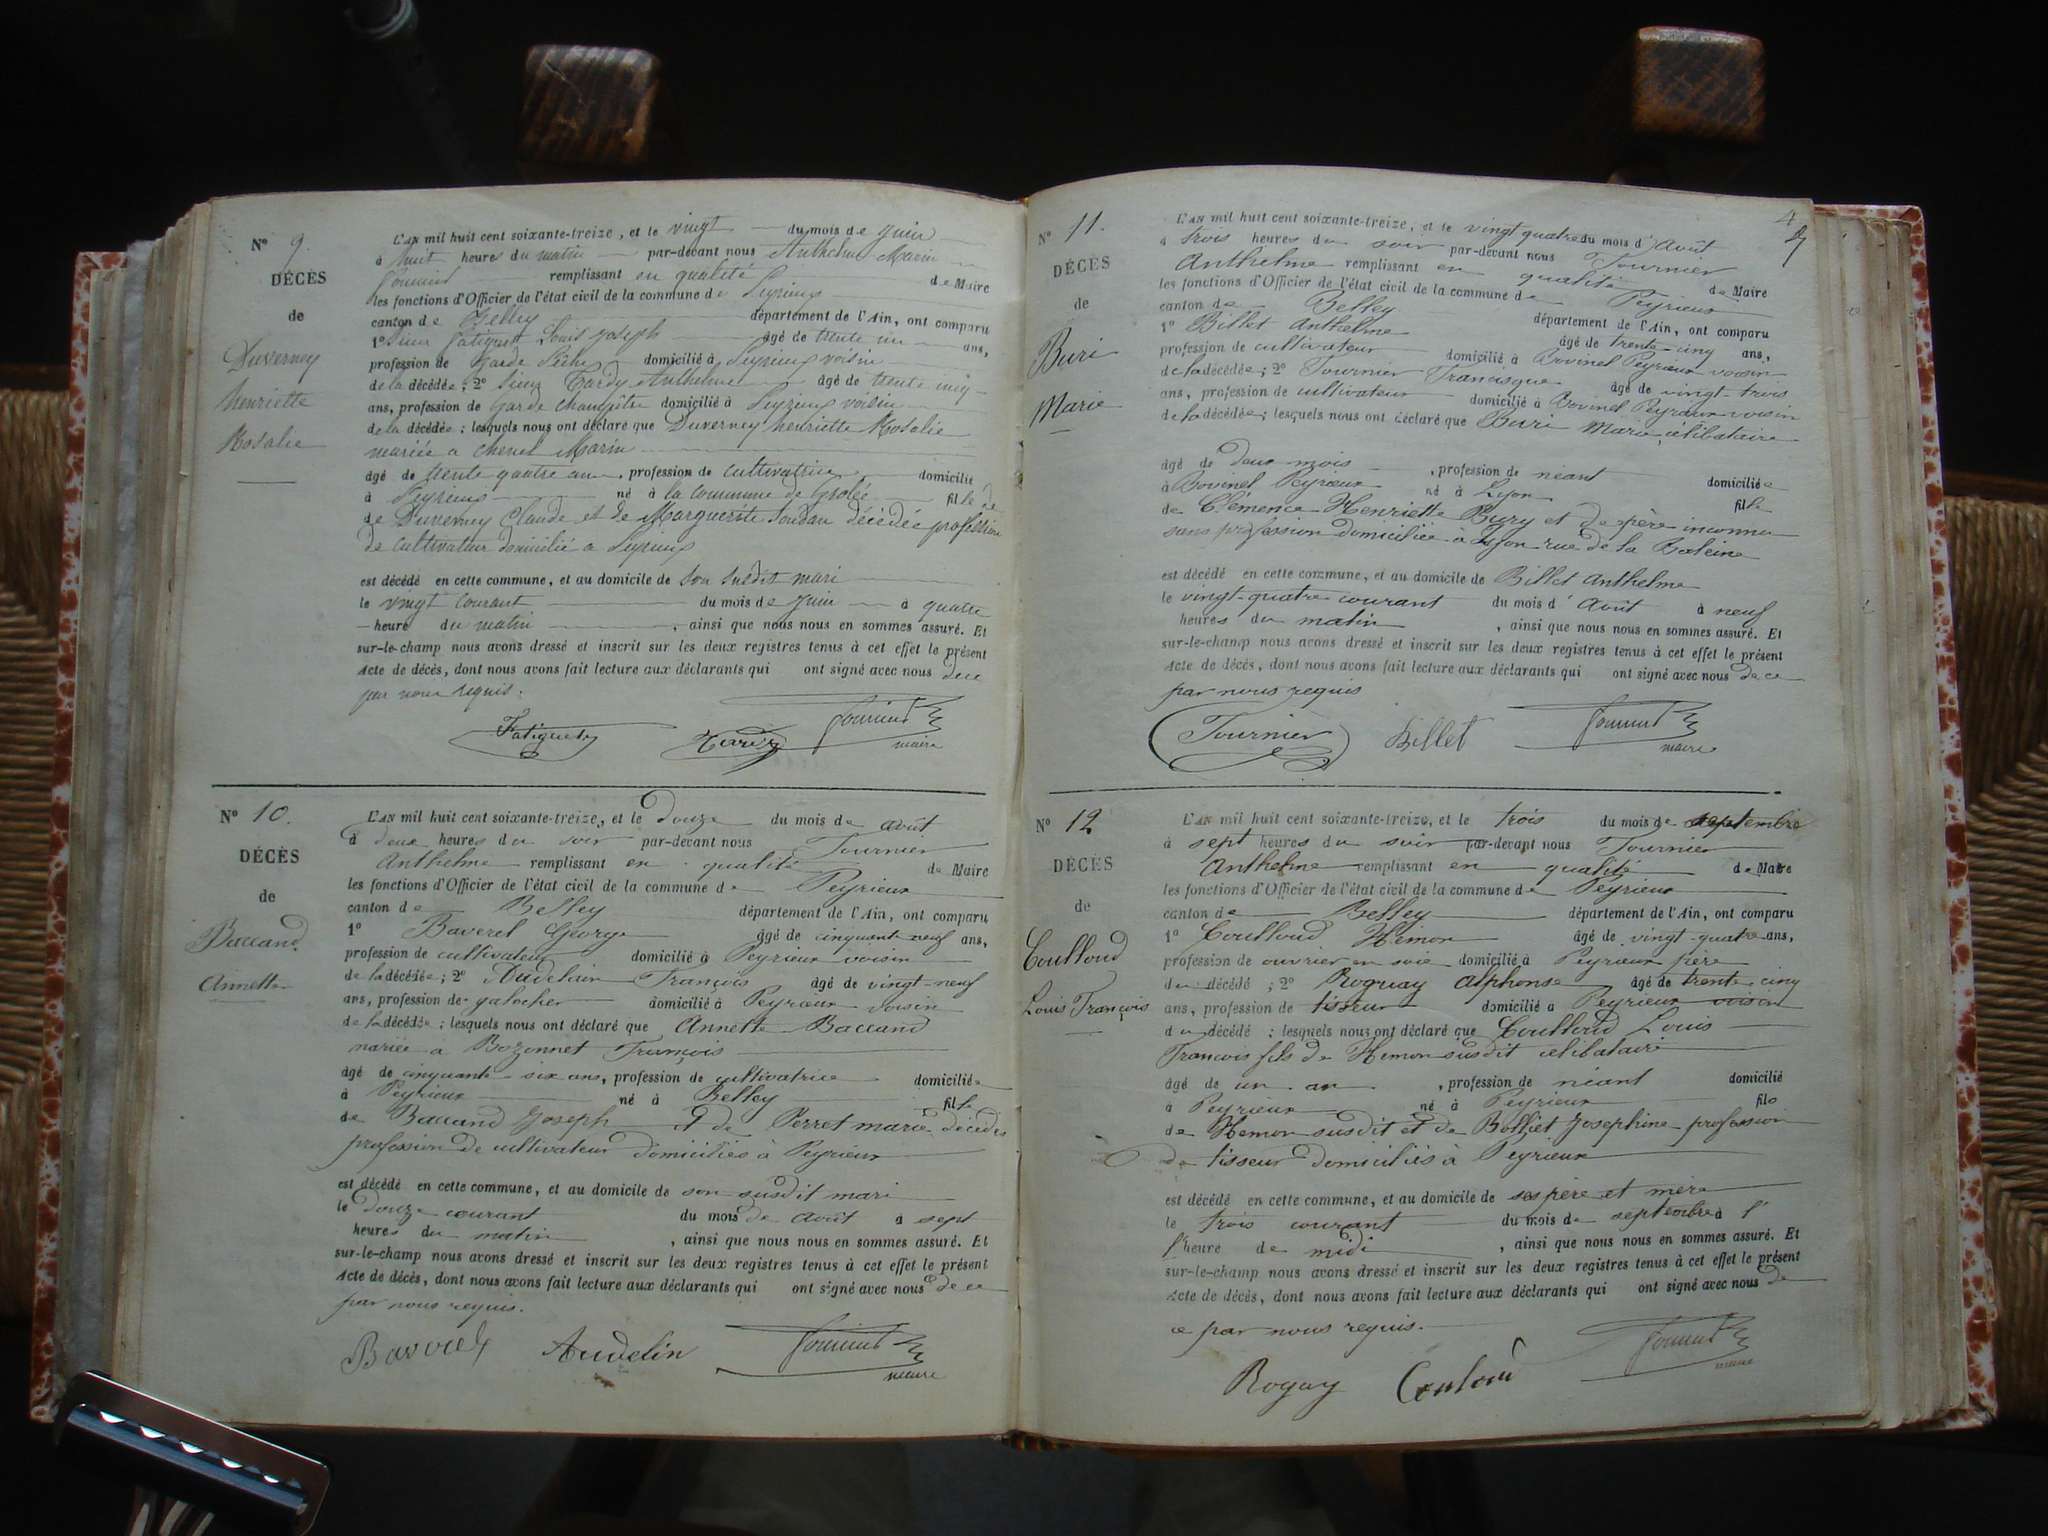 N° 9.
DÉCÈS
de
Duverney
henriette
Rosalie
L'AN mil huit cent soixante-treize, et le vingt du mois de juin
à huit heures du matin par-devant nous Anthelme Marin
remplissant en qualité de Maire
les fonctions d'Officier de l'état civil de la commune de Peyrieux
canton de Belley département de l'Ain, ont comparu
1° Sieur Fatiguet Louis Joseph âgé de trente un ans,
profession de Garde Pêche domicilié à Peyrieux voisin
de la décédée; 2° Sieur Tardy Anthelme âgé de trente cinq
ans, profession de Garde champêtre domicilié à Peyrieux voisin
de la décédée; lesquels nous ont déclaré que Duverney henriette Rosalie
mariée a Marin
âgé de trente quatre ans, profession de cultivatrice domicilié
à Peyrieux né à la commune de Grolée fille de
de Duverney Claude et de Marguerite décédée profession
de cultivateur domicilié a Peyrieux
est décédé en cette commune, et au domicile de son susdit mari
le vingt courant du mois de juin à quatre
heure du matin, ainsi que nous nous en sommes assuré. Et
sur-le-champ nous avons dressé et inscrit sur les deux registres tenus à cet effet le présent
acte de décès, dont nous avons fait lecture aux déclarants qui ont signé avec nous de ce
par nous requis.
Fatiguet Tardy Tournier
maire
N° 10.
DÉCÈS
de
Baccand
Annette
L'AN mil huit cent soixante-treize, et le douze du mois de août
à deux heures du soir par-devant nous Tournier
Anthelme remplissant en qualité de Maire
les fonctions d'Officier de l'état civil de la commune de Peyrieux
canton de Belley département de l'Ain, ont comparu
1° Baverel George âgé de cinquante neuf ans,
profession de cultivateur domicilié à Peyrieux voisin
de la décédée; 2° Audelin François âgé de vingt-neuf
ans, profession de galocher domicilié à Peyrieux voisin
de la décédée; lesquels nous ont déclaré que Annette Baccand
mariée a Bozonnet François
âgé de cinquante-six ans, profession de cultivatrice domiciliée
à Peyrieux né à Belley fille
de Baccand Joseph et de Perret marie décédés
profession de cultivateur domiciliés à Peyrieux
est décédé en cette commune, et au domicile de son susdit mari
le douze courant du mois de août à sept
heures du matin, ainsi que nous nous en sommes assuré. Et
sur-le-champ nous avons dressé et inscrit sur les deux registres tenus à cet effet le présent
acte de décès, dont nous avons fait lecture aux déclarants qui ont signé avec nous de ce
par nous requis.
Audelin Tournier
maire
4
N° 11.
DÉCÈS
de
Buri
Marie
L'AN mil huit cent soixante-treize, et le vingt quatre du mois d'Août
à trois heures du soir par-devant nous Tournier
Anthelme remplissant en qualité de Maire
les fonctions d'Officier de l'état civil de la commune de Peyrieux
canton de Belley département de l'Ain, ont comparu
1° Billet Anthelme âgé de trente-cinq ans,
profession de cultivateur domicilié à Bovinel Peyrieux voisin
de la décédée; 2° Tournier Francisque âgé de vingt-trois
ans, profession de cultivateur domicilié à Bovinel Peyrieux voisin
de la décédée; lesquels nous ont déclaré que Buri Marie, célibataire
âgé de deux mois, profession de néant domiciliée
à Bovinel Peyrieux né à Lyon fille
de Clémence Henriette Bury et de père inconnu
sans profession domiciliée à Lyon rue de la Baleine
est décédé en cette commune, et au domicile de Billet Anthelme
le vingt-quatre courant du mois d'Août à neuf
heures du matin, ainsi que nous nous en sommes assuré. Et
sur-le-champ nous avons dressé et inscrit sur les deux registres tenus à cet effet le présent
acte de décès, dont nous avons fait lecture aux déclarants qui ont signé avec nous de ce
par nous requis
Tournier Billet Tournier
maire
N° 12
DÉCÈS
de
Coulloud
Louis François
L'AN mil huit cent soixante-treize, et le trois du mois de septembre
à sept heures du soir par-devant nous Tournier
Anthelme remplissant en qualité de Maire
les fonctions d'Officier de l'état civil de la commune de Peyrieux
canton de Belley département de l'Ain, ont comparu
1° Coulloud Hémon âgé de vingt-quatre ans,
profession de ouvrier en soie domicilié à Peyrieux père
du décédé; 2° Roguay Alphonse âgé de trente cinq
ans, profession de tisseur domicilié à Peyrieux voisin
du décédé; lesquels nous ont déclaré que Coulloud Louis
François fils de Hémon susdit célibataire
âgé de un an, profession de néant domicilié
à Peyrieux né à Peyrieux fils
de Hémon susdit et de Bolliet Josephine profession
de tisseur domiciliés à Peyrieux
est décédé en cette commune, et au domicile de ses père et mère
le trois courant du mois de septembre à l'
l'heure de midi, ainsi que nous nous en sommes assuré. Et
sur-le-champ nous avons dressé et inscrit sur les deux registres tenus à cet effet le présent
acte de décès, dont nous avons fait lecture aux déclarants qui ont signé avec nous de
ce par nous requis.
Roguy Couloud Tournier
maire